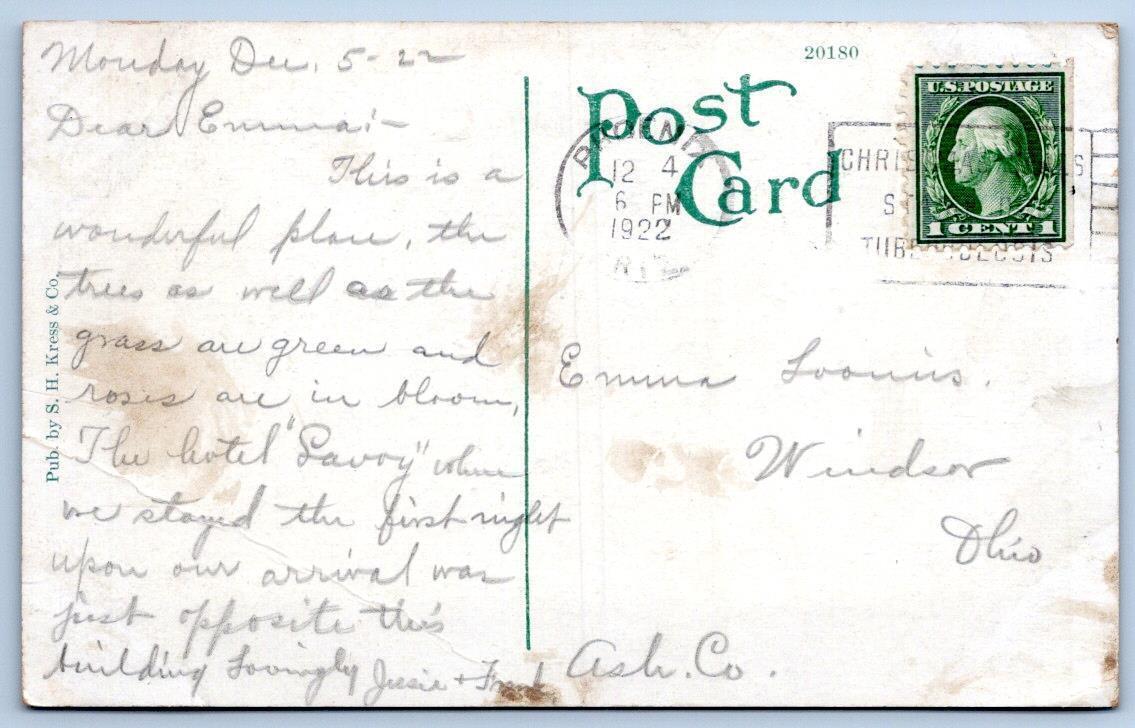 Monday Dec. 5-22
Dear Emma:-
This is a
wonderful place, the
trees as well as the
grass are green and
roses are in bloom,
The hotel "Savoy" where
we stayed the first night
upon our arrival was
just opposite this
building Lovingly Jessie + Frank
Pub. by S. H. Kress & Co.
20180
Post
Card
PHOENIX
12 4
6 PM
1922
ARIZ
U.S. POSTAGE
1 CENT 1
CHRIS
S
TUBERCULOSIS
Emma Loomis.
Windsor
Ohio
Ash. Co.